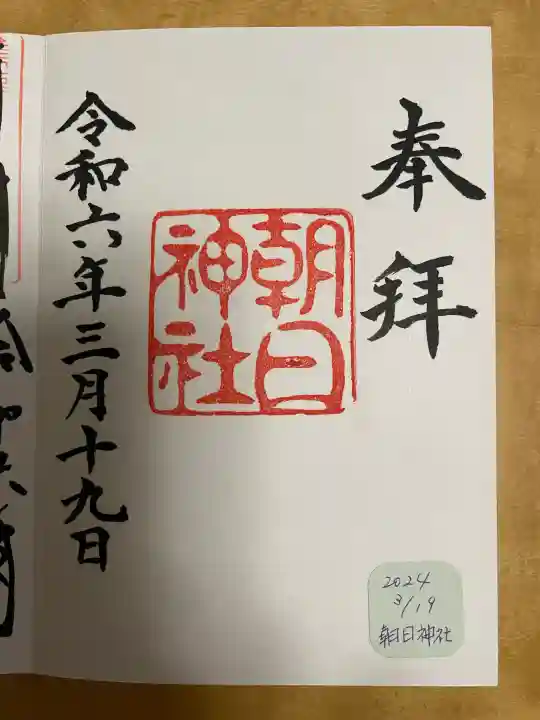 奉拝
朝日
神社
令和六年三月十九日
2024
3/19
朝日神社